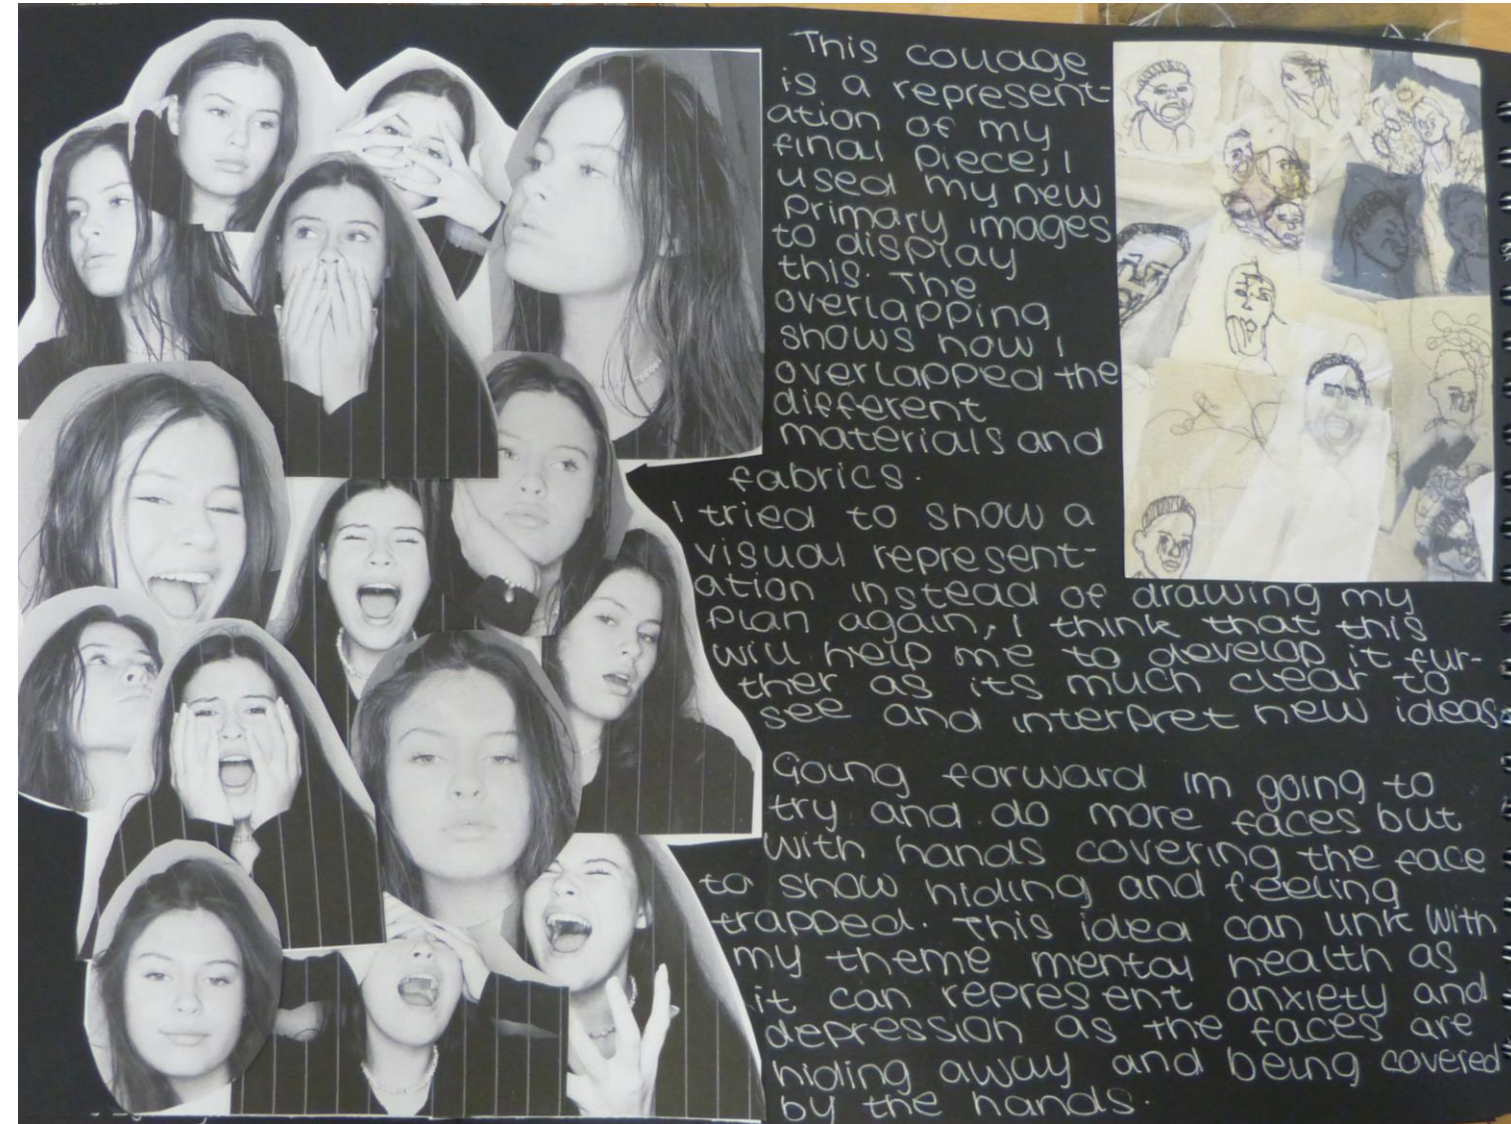 This collage
is a represent-
ation of my
final piece, I
used my new
primary images
to display
this. The
overlapping
shows how I
overlapped the
different
materials and
fabrics.
I tried to show a
visual represent-
ation instead of drawing my
plan again, I think that this
will help me to develop it fur-
ther as its much clear to
see and interpret new ideas.
Going forward im going to
try and do more faces but
with hands covering the face
to show hiding and feeling
trapped. This idea can link with
my theme mental health as
it can represent anxiety and
depression as the faces are
hiding away and being covered
by the hands.